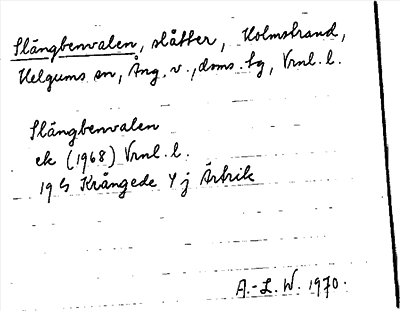 Slängbenvalen, slåtter, Holmstrand,
Helgums sn, Ång. v., doms. bg, Vrnl. l.
Slängbenvalen
ek (1968) Vrnl. l.
19 G Krångede Y j Ärtrik
A.-L. W. 1970.